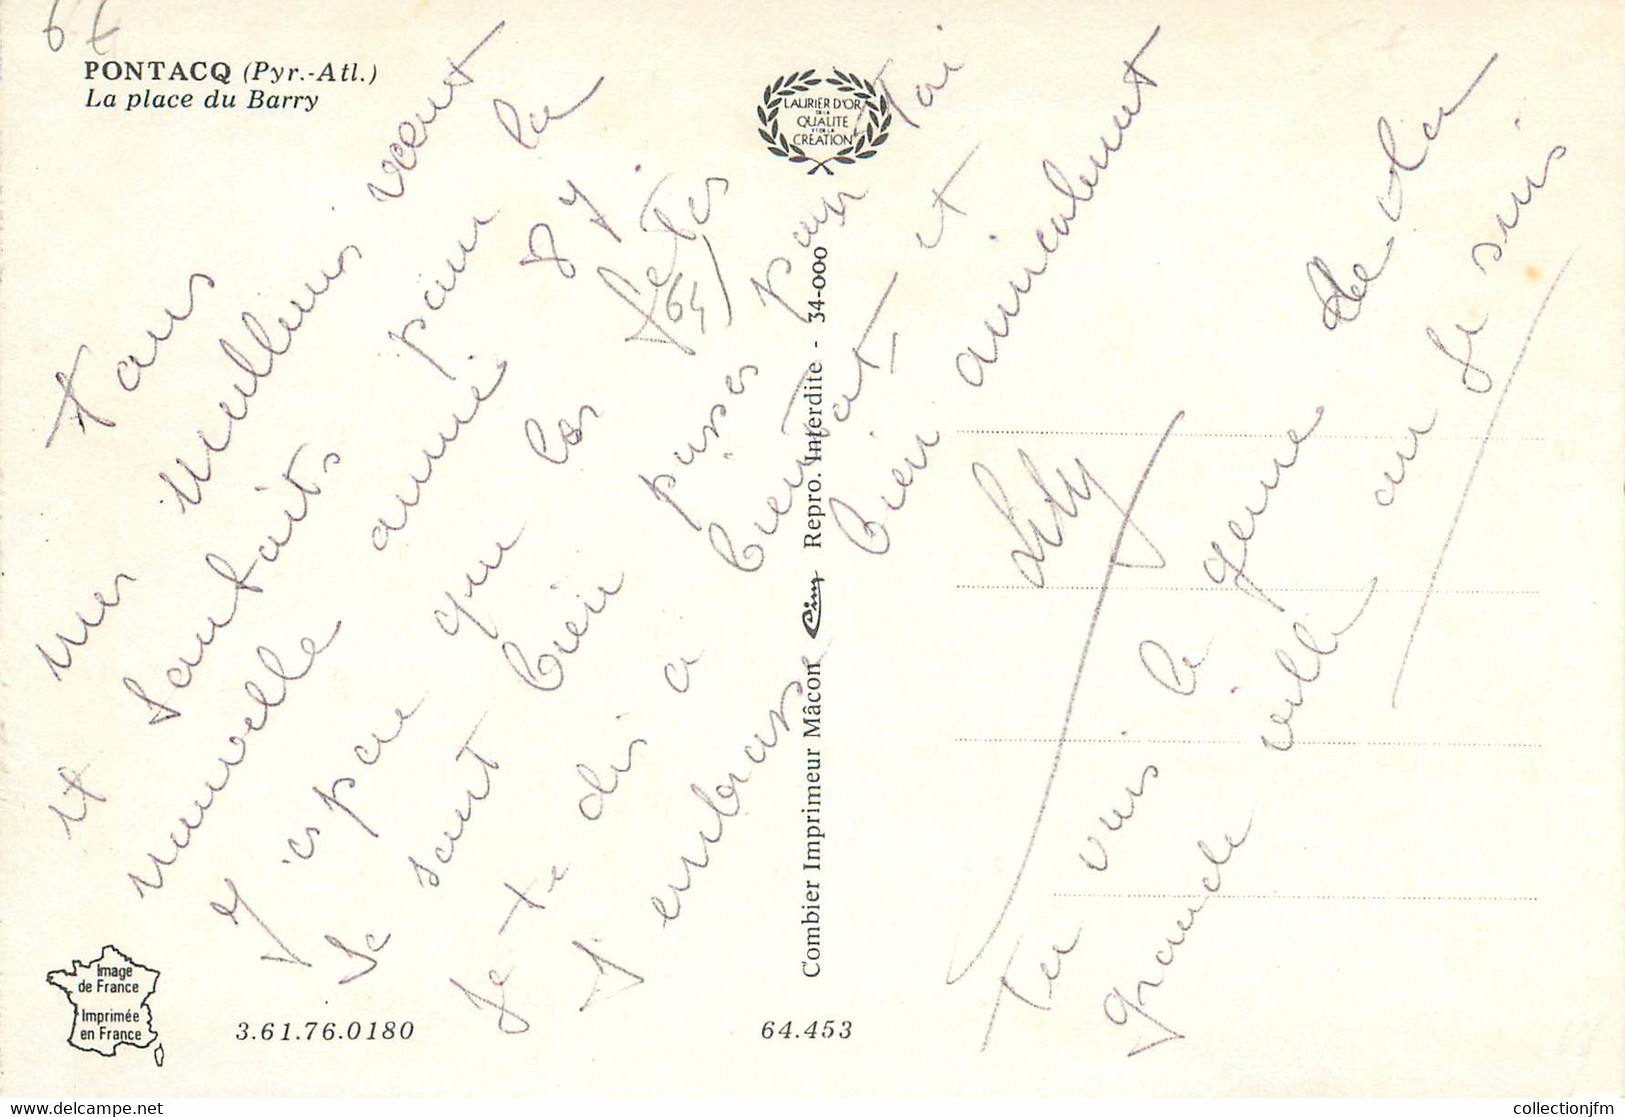 64
PONTACQ (Pyr.-Atl.)
La place du Barry
LAURIER D'OR
DE LA
QUALITE
ET DE LA
CREATION
Tous
mes meilleurs voeux
et souhaits pour la
nouvelle année 87.
J'espère que les fêtes
se sont bien passées pour toi
Je te dis à bientôt et
t'embrasse bien amicalement
Lily
(64)
Tu vois le genre de la
grande ville où je suis
Combier Imprimeur Mâcon Cim Repro. Interdite - 34-000
Image
de France
Imprimée
en France
3.61.76.0180
64.453
collectionjfm